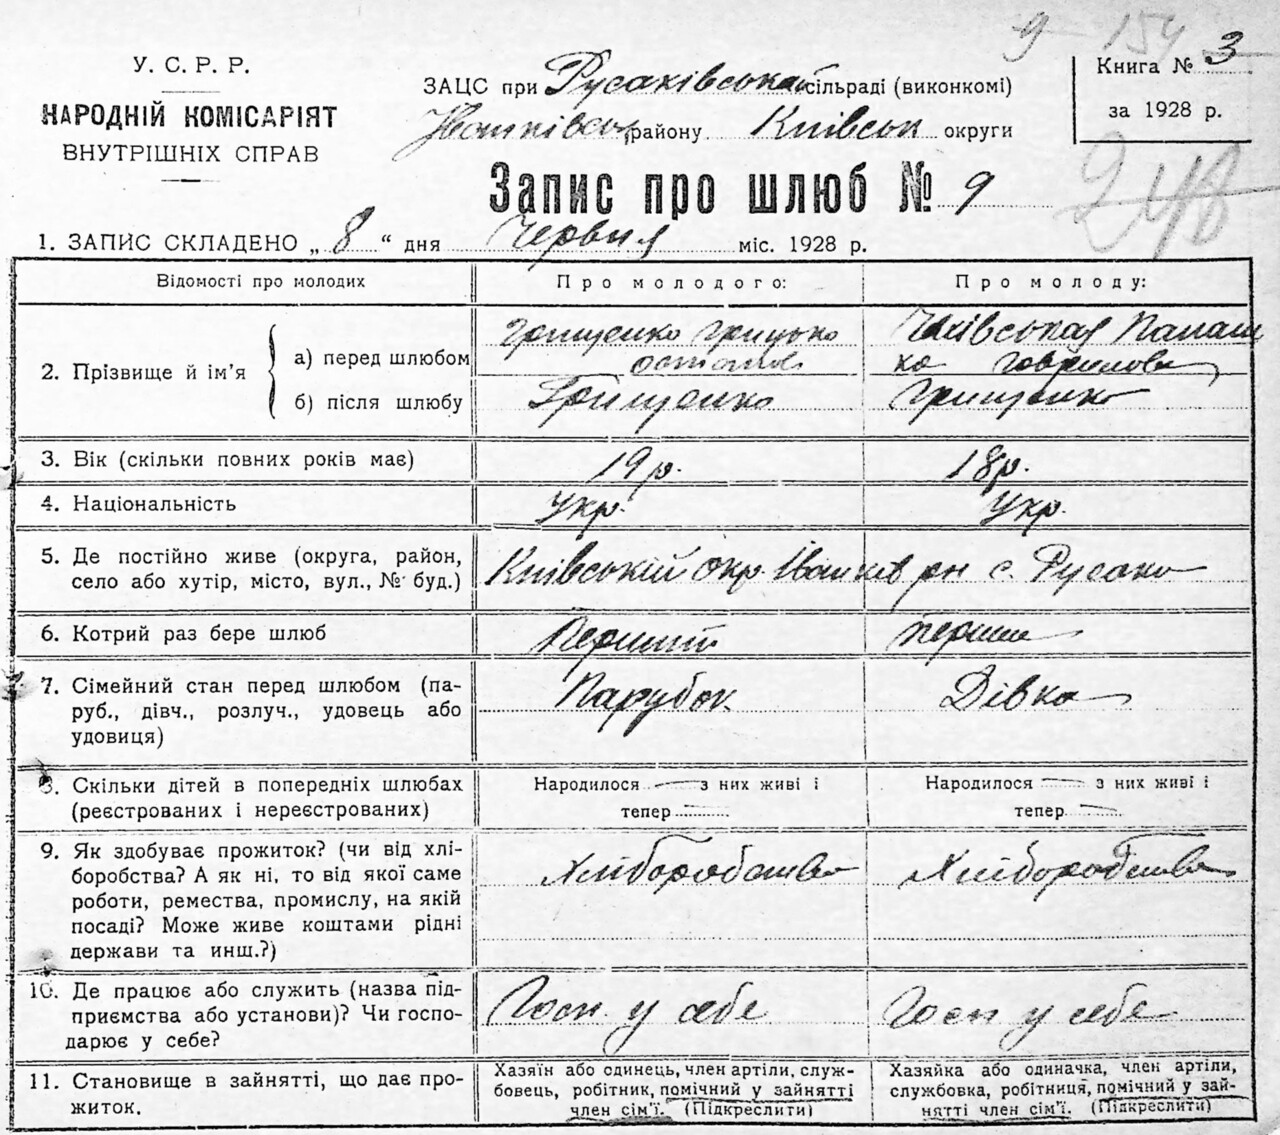 9 154
У. С. Р. Р.
НАРОДНІЙ КОМІСАРІЯТ
ВНУТРІШНІХ СПРАВ
ЗАЦС при Русаківській сільраді (виконкомі)
району Київськ округи
Книга № 3
за 1928 р.
248
Запис про шлюб № 9
1. ЗАПИС СКЛАДЕНО „ 8 “ дня Червня міс. 1928 р.
Відомості про молодих
Про молодого:
Про молоду:
2. Прізвище й ім'я
а) перед шлюбом
Грищенко Грицько
Панаш
ко Гаврилова
б) після шлюбу
Грищенко
Грищенко
3. Вік (скільки повних років має)
19 р.
18 р.
4. Національність
Укр.
Укр.
5. Де постійно живе (округа, район,
село або хутір, місто, вул., № буд.)
Київській окр. Іванків рн с. Русаки
6. Котрий раз бере шлюб
Перший
перши
7. Сімейний стан перед шлюбом (па-
руб., дівч., розлуч., удовець або
удовиця)
Парубок
Дівка
8. Скільки дітей в попередніх шлюбах
(реєстрованих і нереєстрованих)
Народилося — з них живі і
тепер —
Народилося — з них живі і
тепер —
9. Як здобуває прожиток? (чи від хлі-
боробства? А як ні, то від якої саме
роботи, ремества, промислу, на якій
посаді? Може живе коштами рідні
держави та инш.?)
Хліборобство
Хліборобство
10. Де працює або служить (назва під-
приємства або установи)? Чи госпо-
дарює у себе?
Госп. у себе
Госп у себе
11. Становище в зайнятті, що дає про-
житок.
Хазяїн або одинець, член артілі, служ-
бовець, робітник, помічний у зайнятті
член сім'ї. (Підкреслити)
Хазяйка або одиначка, член артіли,
службовка, робітниця, помічний у зай-
нятті член сім'ї. (Підкреслити)